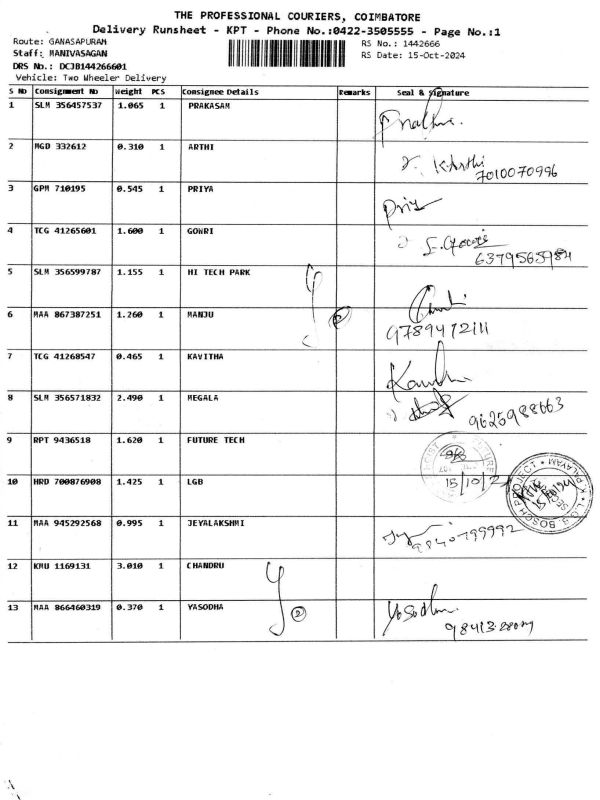 THE PROFESSIONAL COURIERS, COIMBATORE
Delivery Runsheet - KPT - Phone No.:0422-3505555 - Page No.:1
Route: GANASAPURAM RS No.: 1442666
Staff: MANIVASAGAN RS Date: 15-Oct-2024
DRS No.: DCJB144266601
Vehicle: Two Wheeler Delivery
S No Consignment No Weight PCS Consignee Details Remarks Seal & Signature
1 SLM 356457537 1.065 1 PRAKASAM
2 MGD 332612 0.310 1 ARTHI
7010070996
3 GPM 710195 0.545 1 PRIYA Priya
4 TCG 41265601 1.600 1 GOWRI
6379565984
5 SLM 356599787 1.155 1 HI TECH PARK
6 MAA 867387251 1.260 1 MANJU 2
9789472111
7 TCG 41268547 0.465 1 KAVITHA
8 SLM 356571832 2.490 1 MEGALA
9625988663
9 RPT 9436518 1.620 1 FUTURE TECH
10 HRD 700876908 1.425 1 LGB 15/10/2
L.G.B. BOSCH PROJECT K. PALAYAM
11 MAA 945292568 0.995 1 JEYALAKSHMI
9840799992
12 KMU 1169131 3.010 1 CHANDRU
13 MAA 866460319 0.370 1 YASODHA 2 Yasodha